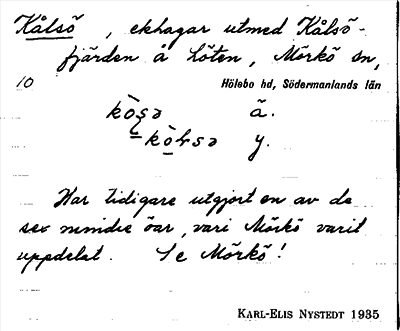 Kålsö, ekhagar utmed Kålsö-
fjärden å Löten, Mörkö sn,
10 Hölebo hd, Södermanlands län
kò̱s̱ə ä.
-kò̱ɫsə y.
Har tidigare utgjort en av de
sex mindre öar, vari Mörkö varit
uppdelat. Se Mörkö!
KARL-ELIS NYSTEDT 1935